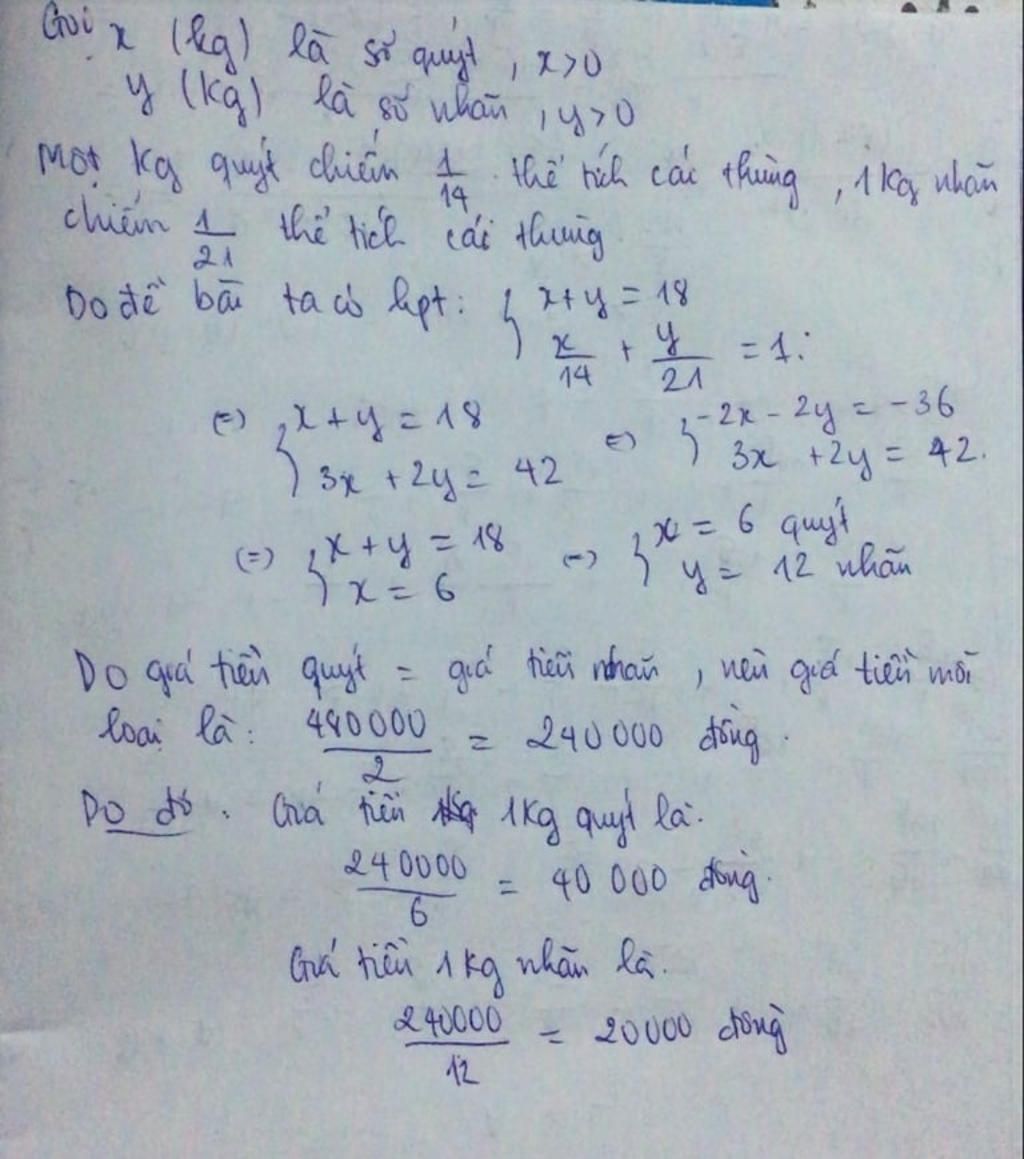 Gọi x (kg) là số quýt, x>0
y (kg) là số nhãn, y>0
Một kg quýt chiếm 1/14 thể tích cái thùng, 1 kg nhãn
chiếm 1/21 thể tích cái thùng
Do đề bài ta có hpt: { x+y = 18
x/14 + y/21 = 1.
(=) { x+y = 18 (=) { -2x - 2y = -36
3x + 2y = 42 3x + 2y = 42.
(=) { x+y = 18 (=) { x = 6 quýt
x = 6 y = 12 nhãn
Do giá tiền quýt = giá tiền nhãn, nên giá tiền mỗi
loại là: 480000/2 = 240 000 đồng.
Do đó. Giá tiền 1kg quýt là.
240000/6 = 40 000 đồng.
Giá tiền 1kg nhãn là.
240000/12 = 20000 đồng